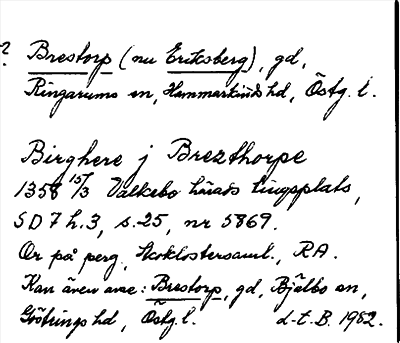 ? Brestorp (nu Eriksberg), gd,
Ringarums sn, Hammarkinds hd, Östg. l.
Birghere j Brezthorpe
1358 15/3 Valkebo härads tingsplats,
SD 7 h.3, s.25, nr 5869.
Or på perg, Skoklostersaml., RA.
Kan även avse: Brestorp, gd, Bjälbo sn,
Göstrings hd, Östg. l. d-t. B. 1982.